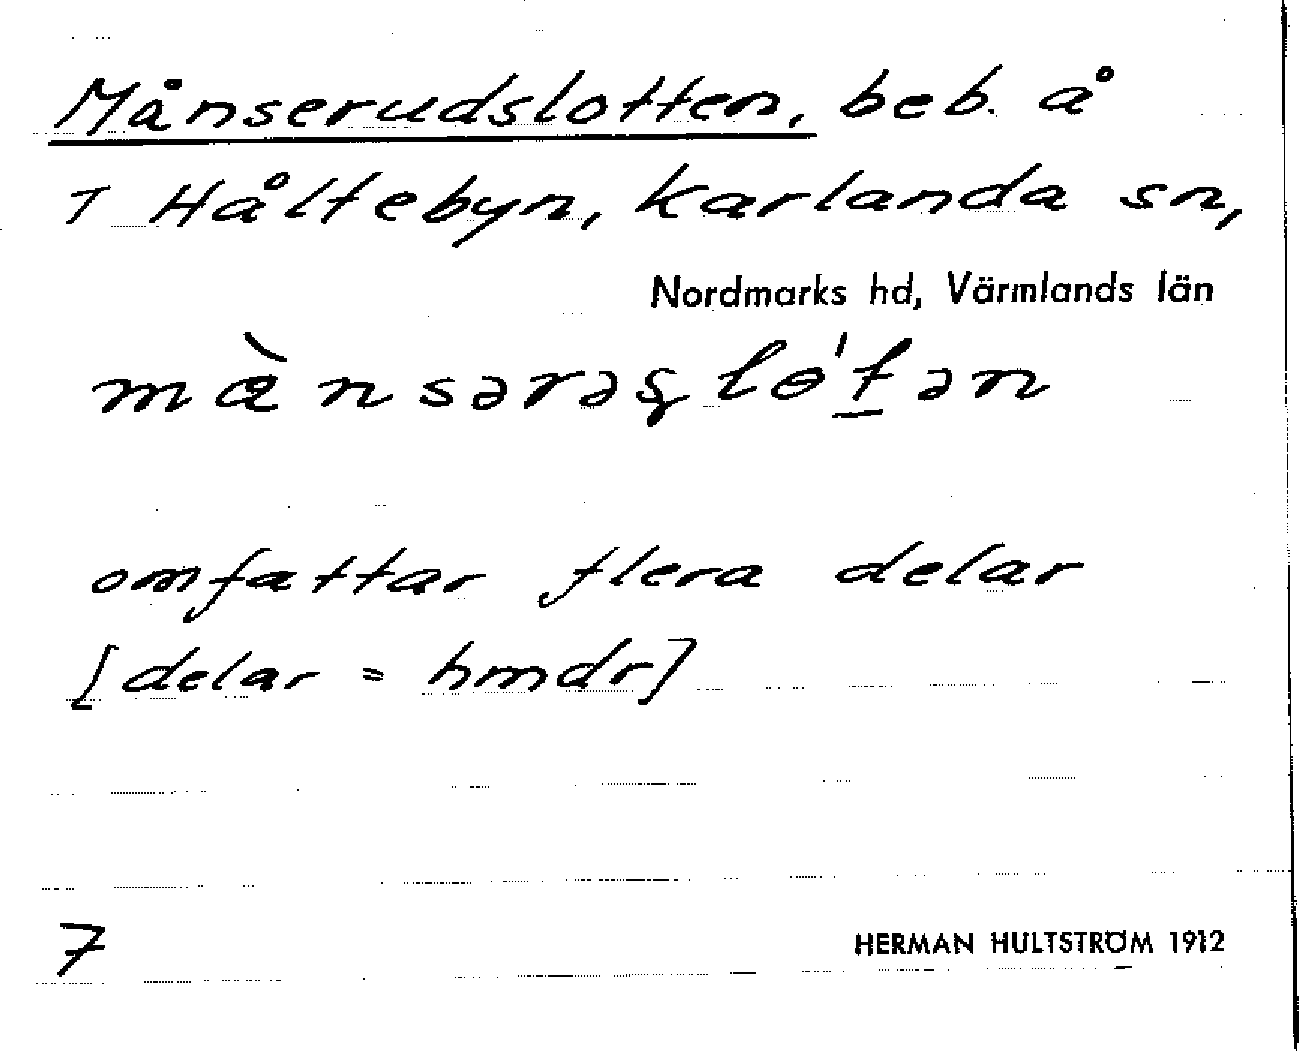 Månserudslotten, beb. å
T Håltebyn, Karlanda sn,
Nordmarks hd, Värmlands län
omfattar flera delar
[delar = hmdr]
7
HERMAN HULTSTRÖM 1912